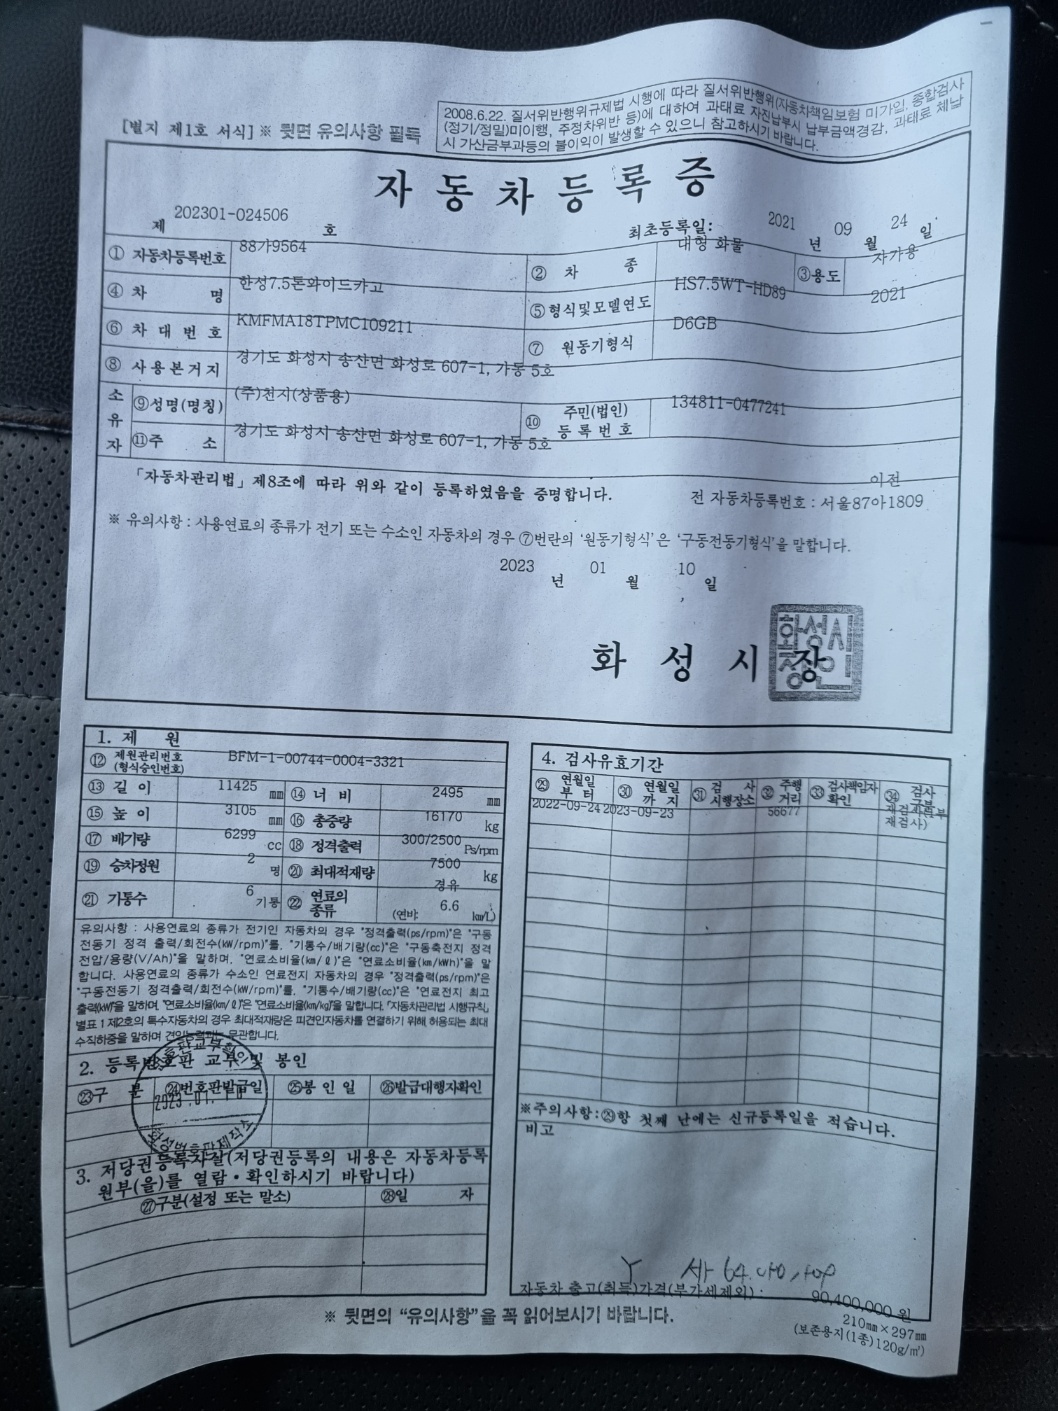 [별지 제1호 서식] ※ 뒷면 유의사항 필독
2008.6.22. 질서위반행위규제법 시행에 따라 질서위반행위(자동차책임보험 미가입, 종합검사
(정기/정밀)미이행, 주정차위반 등)에 대하여 과태료 자진납부시 납부금액경감, 과태료 체납
시 가산금부과등의 불이익이 발생할 수 있으니 참고하시기 바랍니다.
자동차등록증
제 202301-024506 호
최초등록일: 2021 년 09 월 24 일
① 자동차등록번호 88가9564 ② 차 종 대형 화물 ③용도 자가용
④ 차 명 한성7.5톤와이드카고 ⑤형식및모델연도 HS7.5WT-HD89 2021
⑥ 차대번호 KMFMA18TPMC109211 ⑦ 원동기형식 D6GB
⑧ 사용본거지 경기도 화성시 송산면 화성로 607-1, 가동 5호
소유자 ⑨성명(명칭) (주)천지(상품용) ⑩ 주민(법인)등록번호 134811-0477241
⑪주 소 경기도 화성시 송산면 화성로 607-1, 가동 5호
「자동차관리법」제8조에 따라 위와 같이 등록하였음을 증명합니다.
이전
전 자동차등록번호 : 서울87아1809
※ 유의사항 : 사용연료의 종류가 전기 또는 수소인 자동차의 경우 ⑦번란의 '원동기형식'은 '구동전동기형식'을 말합니다.
2023 년 01 월 10 일
화성시장
화성시장인
1. 제 원
⑫ 제원관리번호(형식승인번호) BFM-1-00744-0004-3321
⑬ 길이 11425 mm ⑭ 너비 2495 mm
⑮ 높이 3105 mm ⑯ 총중량 16170 kg
⑰ 배기량 6299 cc ⑱ 정격출력 300/2500 Ps/rpm
⑲ 승차정원 2 명 ⑳ 최대적재량 7500 kg
㉑ 기통수 6 기통 ㉒ 연료의 종류 경유 (연비: 6.6 km/L)
유의사항 : 사용연료의 종류가 전기인 자동차의 경우 "정격출력(ps/rpm)"은 "구동
전동기 정격 출력/회전수(kW/rpm)"를, "기통수/배기량(cc)"은 "구동축전지 정격
전압/용량(V/Ah)"을 말하며, "연료소비율(㎞/ℓ)"은 "연료소비율(㎞/kWh)"을 말
합니다. 사용연료의 종류가 수소인 연료전지 자동차의 경우 "정격출력(ps/rpm)"은
"구동전동기 정격출력/회전수(kW/rpm)"를, "기통수/배기량(cc)"은 "연료전지 최고
출력(kW)"을 말하며, "연료소비율(㎞/ℓ)"은 "연료소비율(㎞/kg)"을 말합니다. 「자동차관리법 시행규칙」
별표 1 제2호의 특수자동차의 경우 최대적재량은 피견인자동차를 연결하기 위해 허용되는 최대
수직하중을 말하며 무관합니다.
2. 등록번호판 교부 및 봉인
㉓구 분 ㉔번호판발급일 ㉕봉인일 ㉖발급대행자확인
2023.01.10
화성번호판제작소
3. 저당권등록사실(저당권등록의 내용은 자동차등록
원부(을)를 열람·확인하시기 바랍니다)
㉗구분(설정 또는 말소) ㉘일 자
4. 검사유효기간
㉙ 연월일부터 ㉚ 연월일까지 ㉛ 검사시행장소 ㉜ 주행거리 ㉝ 검사책임자확인 ㉞ 검사구분
2022-09-24 2023-09-23 56677
재검사)
※주의사항:㉙항 첫째 난에는 신규등록일을 적습니다.
비고
자동차 출고(취득)가격(부가세제외) : 90,400,000 원
※ 뒷면의 "유의사항"을 꼭 읽어보시기 바랍니다.
210㎜×297㎜
(보존용지(1종)120g/㎡)